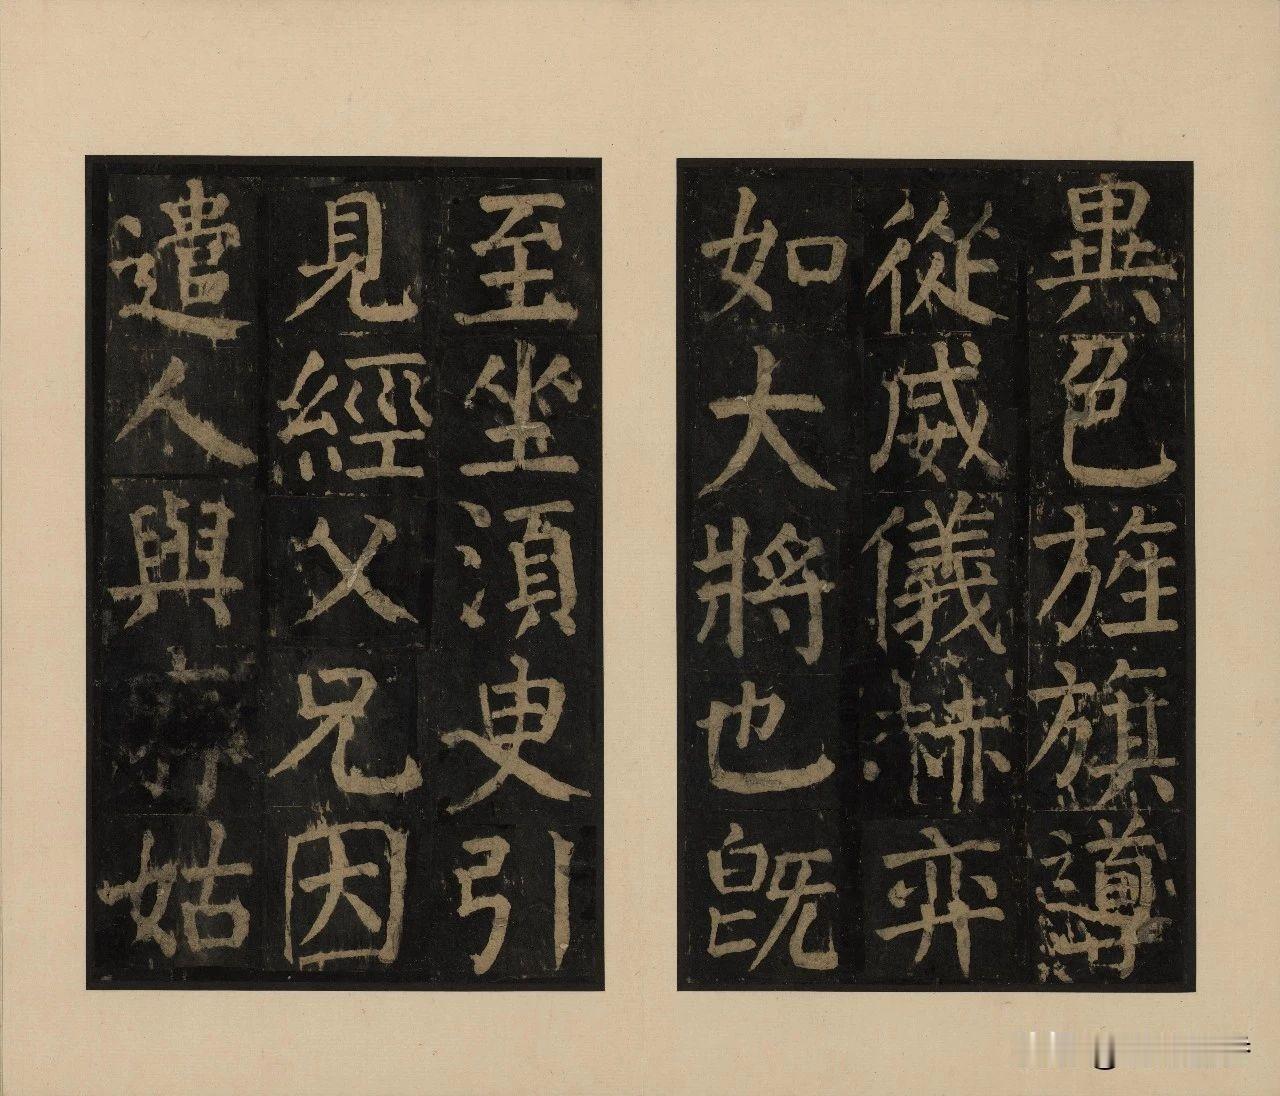 異色旌旗導
從威儀赫弈
如大將也旣
至坐須臾引
見經父兄因
遣人與姑